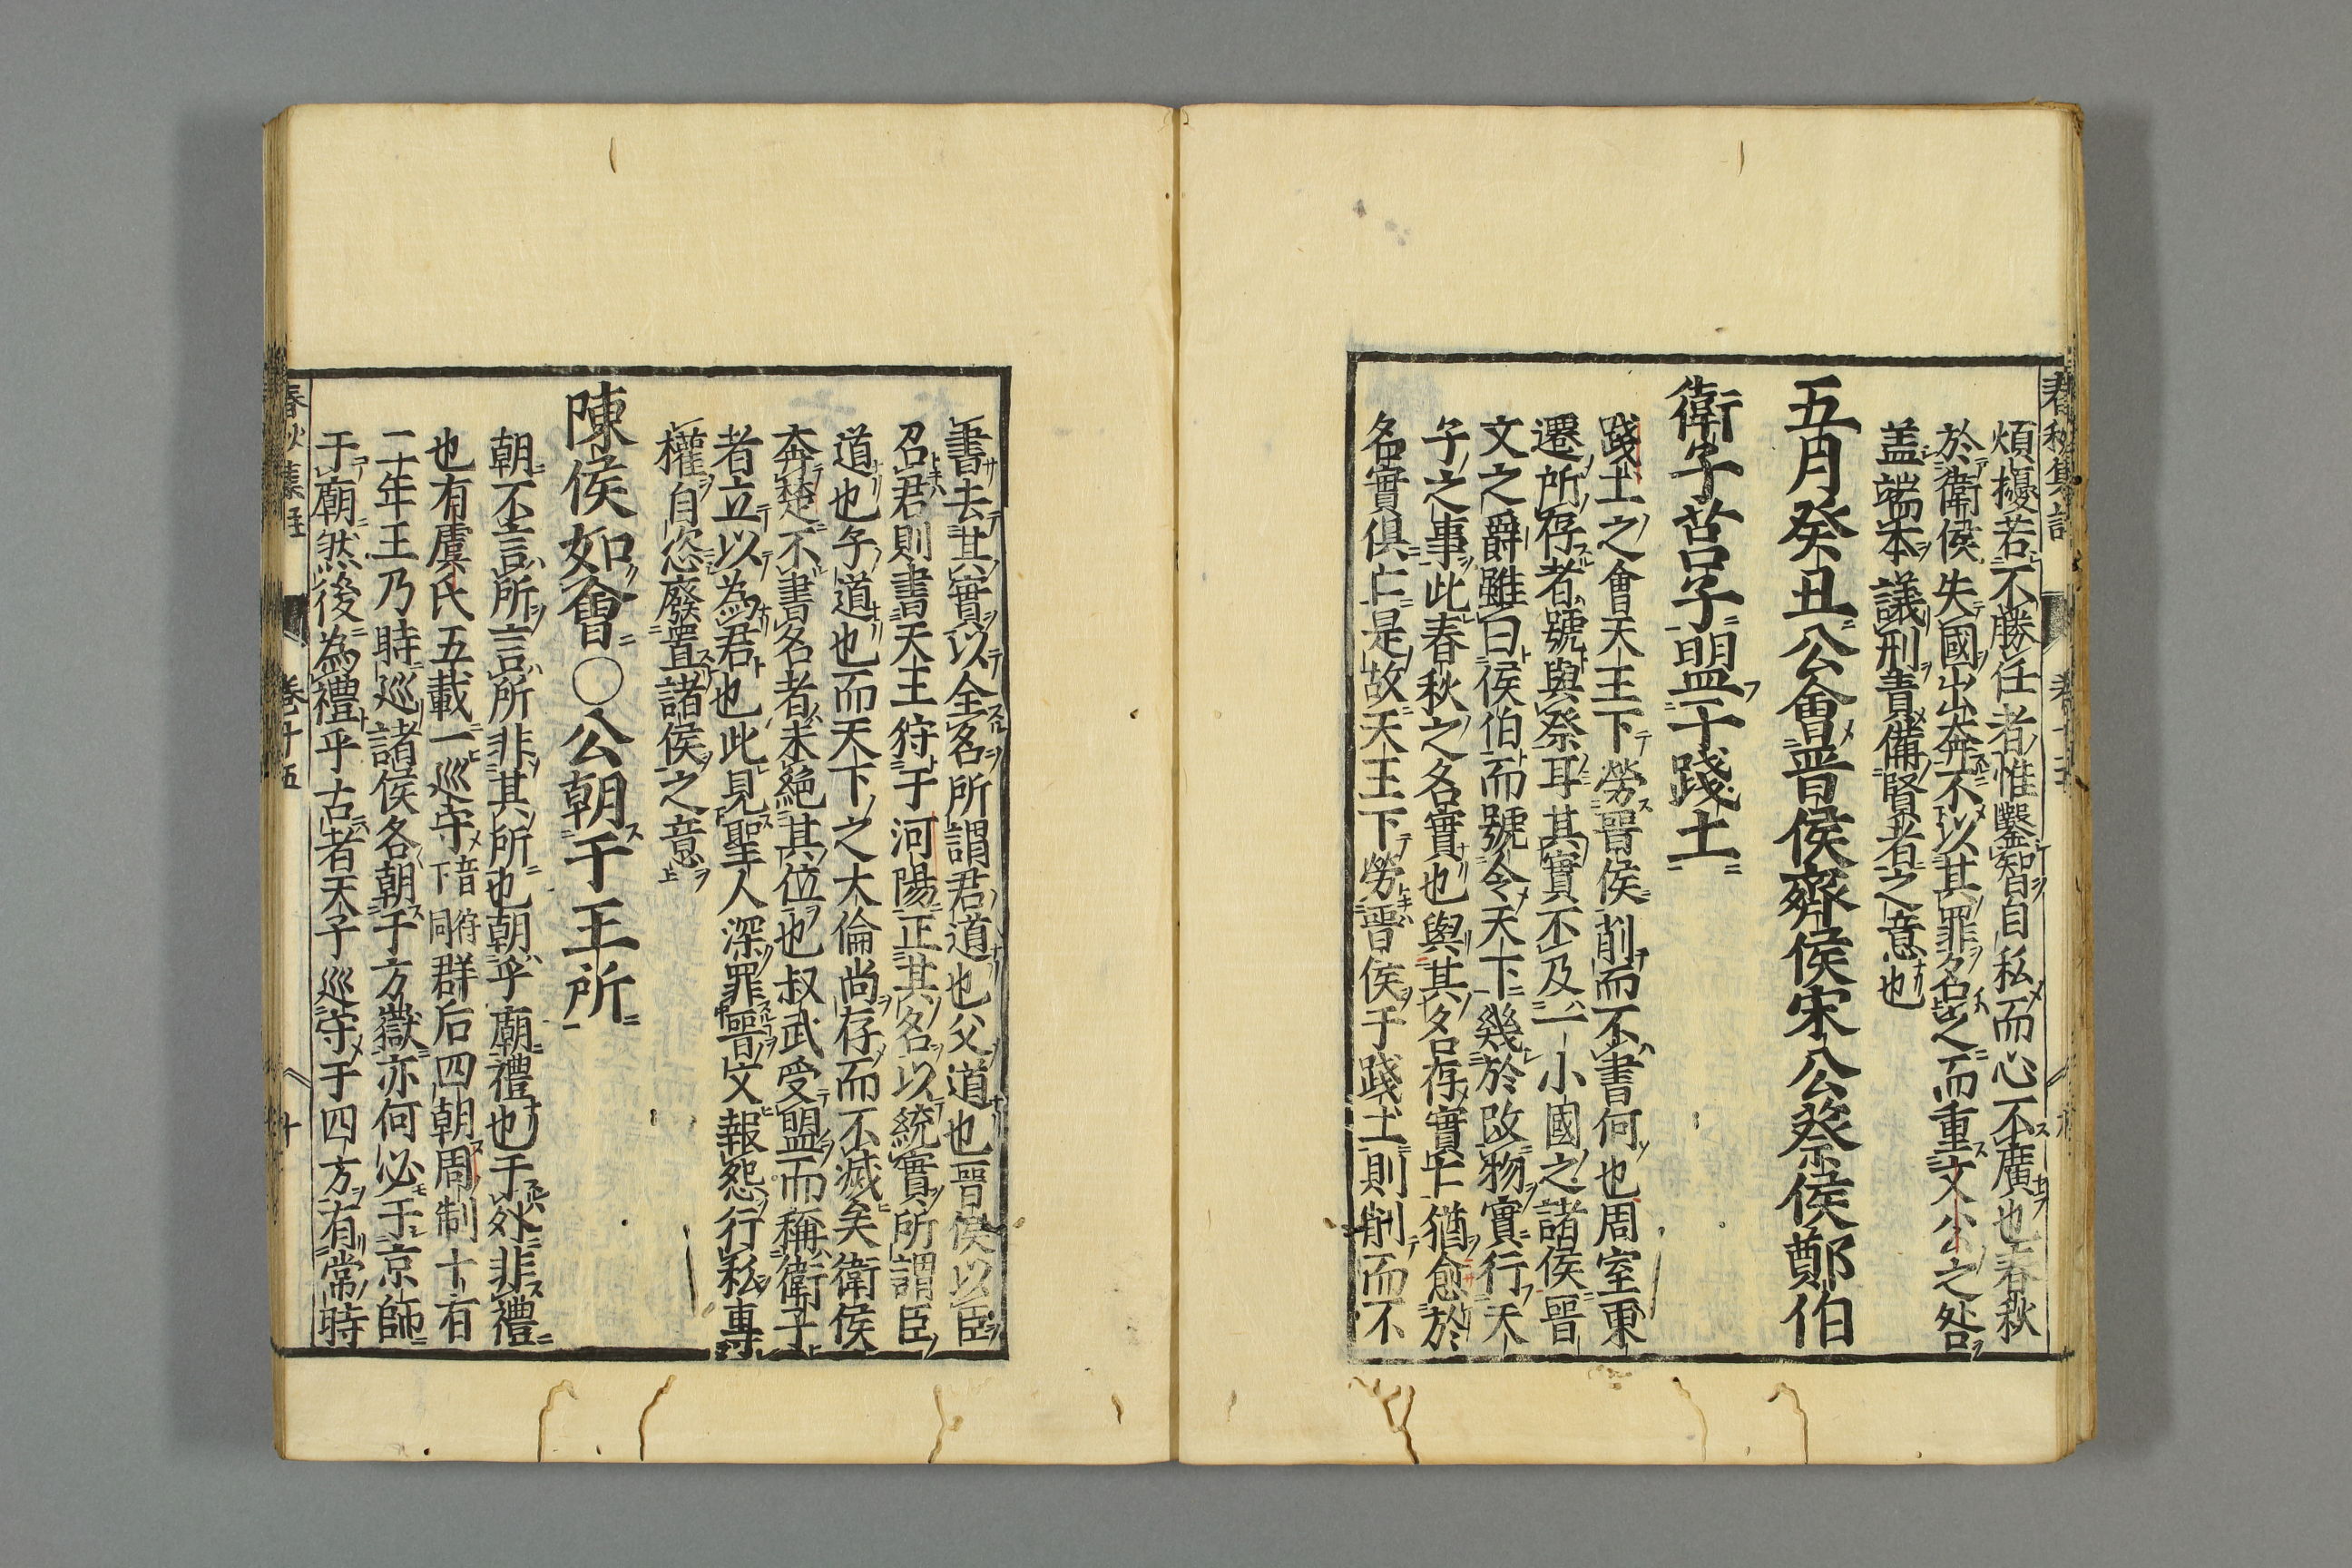 煩擾若不勝任者惟鑿智自私而心不廣也春秋
於衛侯失國出奔不以其罪名之而重文公之咎
盖端本議刑責備賢者之意也
五月癸丑公會晋侯齊侯宋公蔡侯鄭伯
衛子莒子盟于踐土
踐土之會天王下勞晋侯削而不書何也周室東
遷所存者號與祭耳其實不及一小國之諸侯晋
文之爵雖曰侯伯而號令天下幾於改物實行天
子之事此春秋之名實也與其名存實亡猶愈於
名實俱亡是故天王下勞晋侯于踐土則削而不
書去其實以全名所謂君道也父道也晋侯以臣
召君則書天王狩于河陽正其名以統實所謂臣
道也子道也而天下之大倫尚存而不滅矣衛侯
奔楚不書名者未絶其位也叔武受盟而稱衛子
者立以為君也此見聖人深罪晋文報怨行私專
權自恣廢置諸侯之意
陳侯如會○公朝于王所
朝不言所言所非其所也朝乎廟禮也于外非禮
也有虞氏五載一巡守音狩下同群后四朝周制十有
二年王乃時巡諸侯各朝于方嶽亦何必于京師
于廟然後為禮乎古者天子巡守于四方有常時
春秋集註 卷十五 十